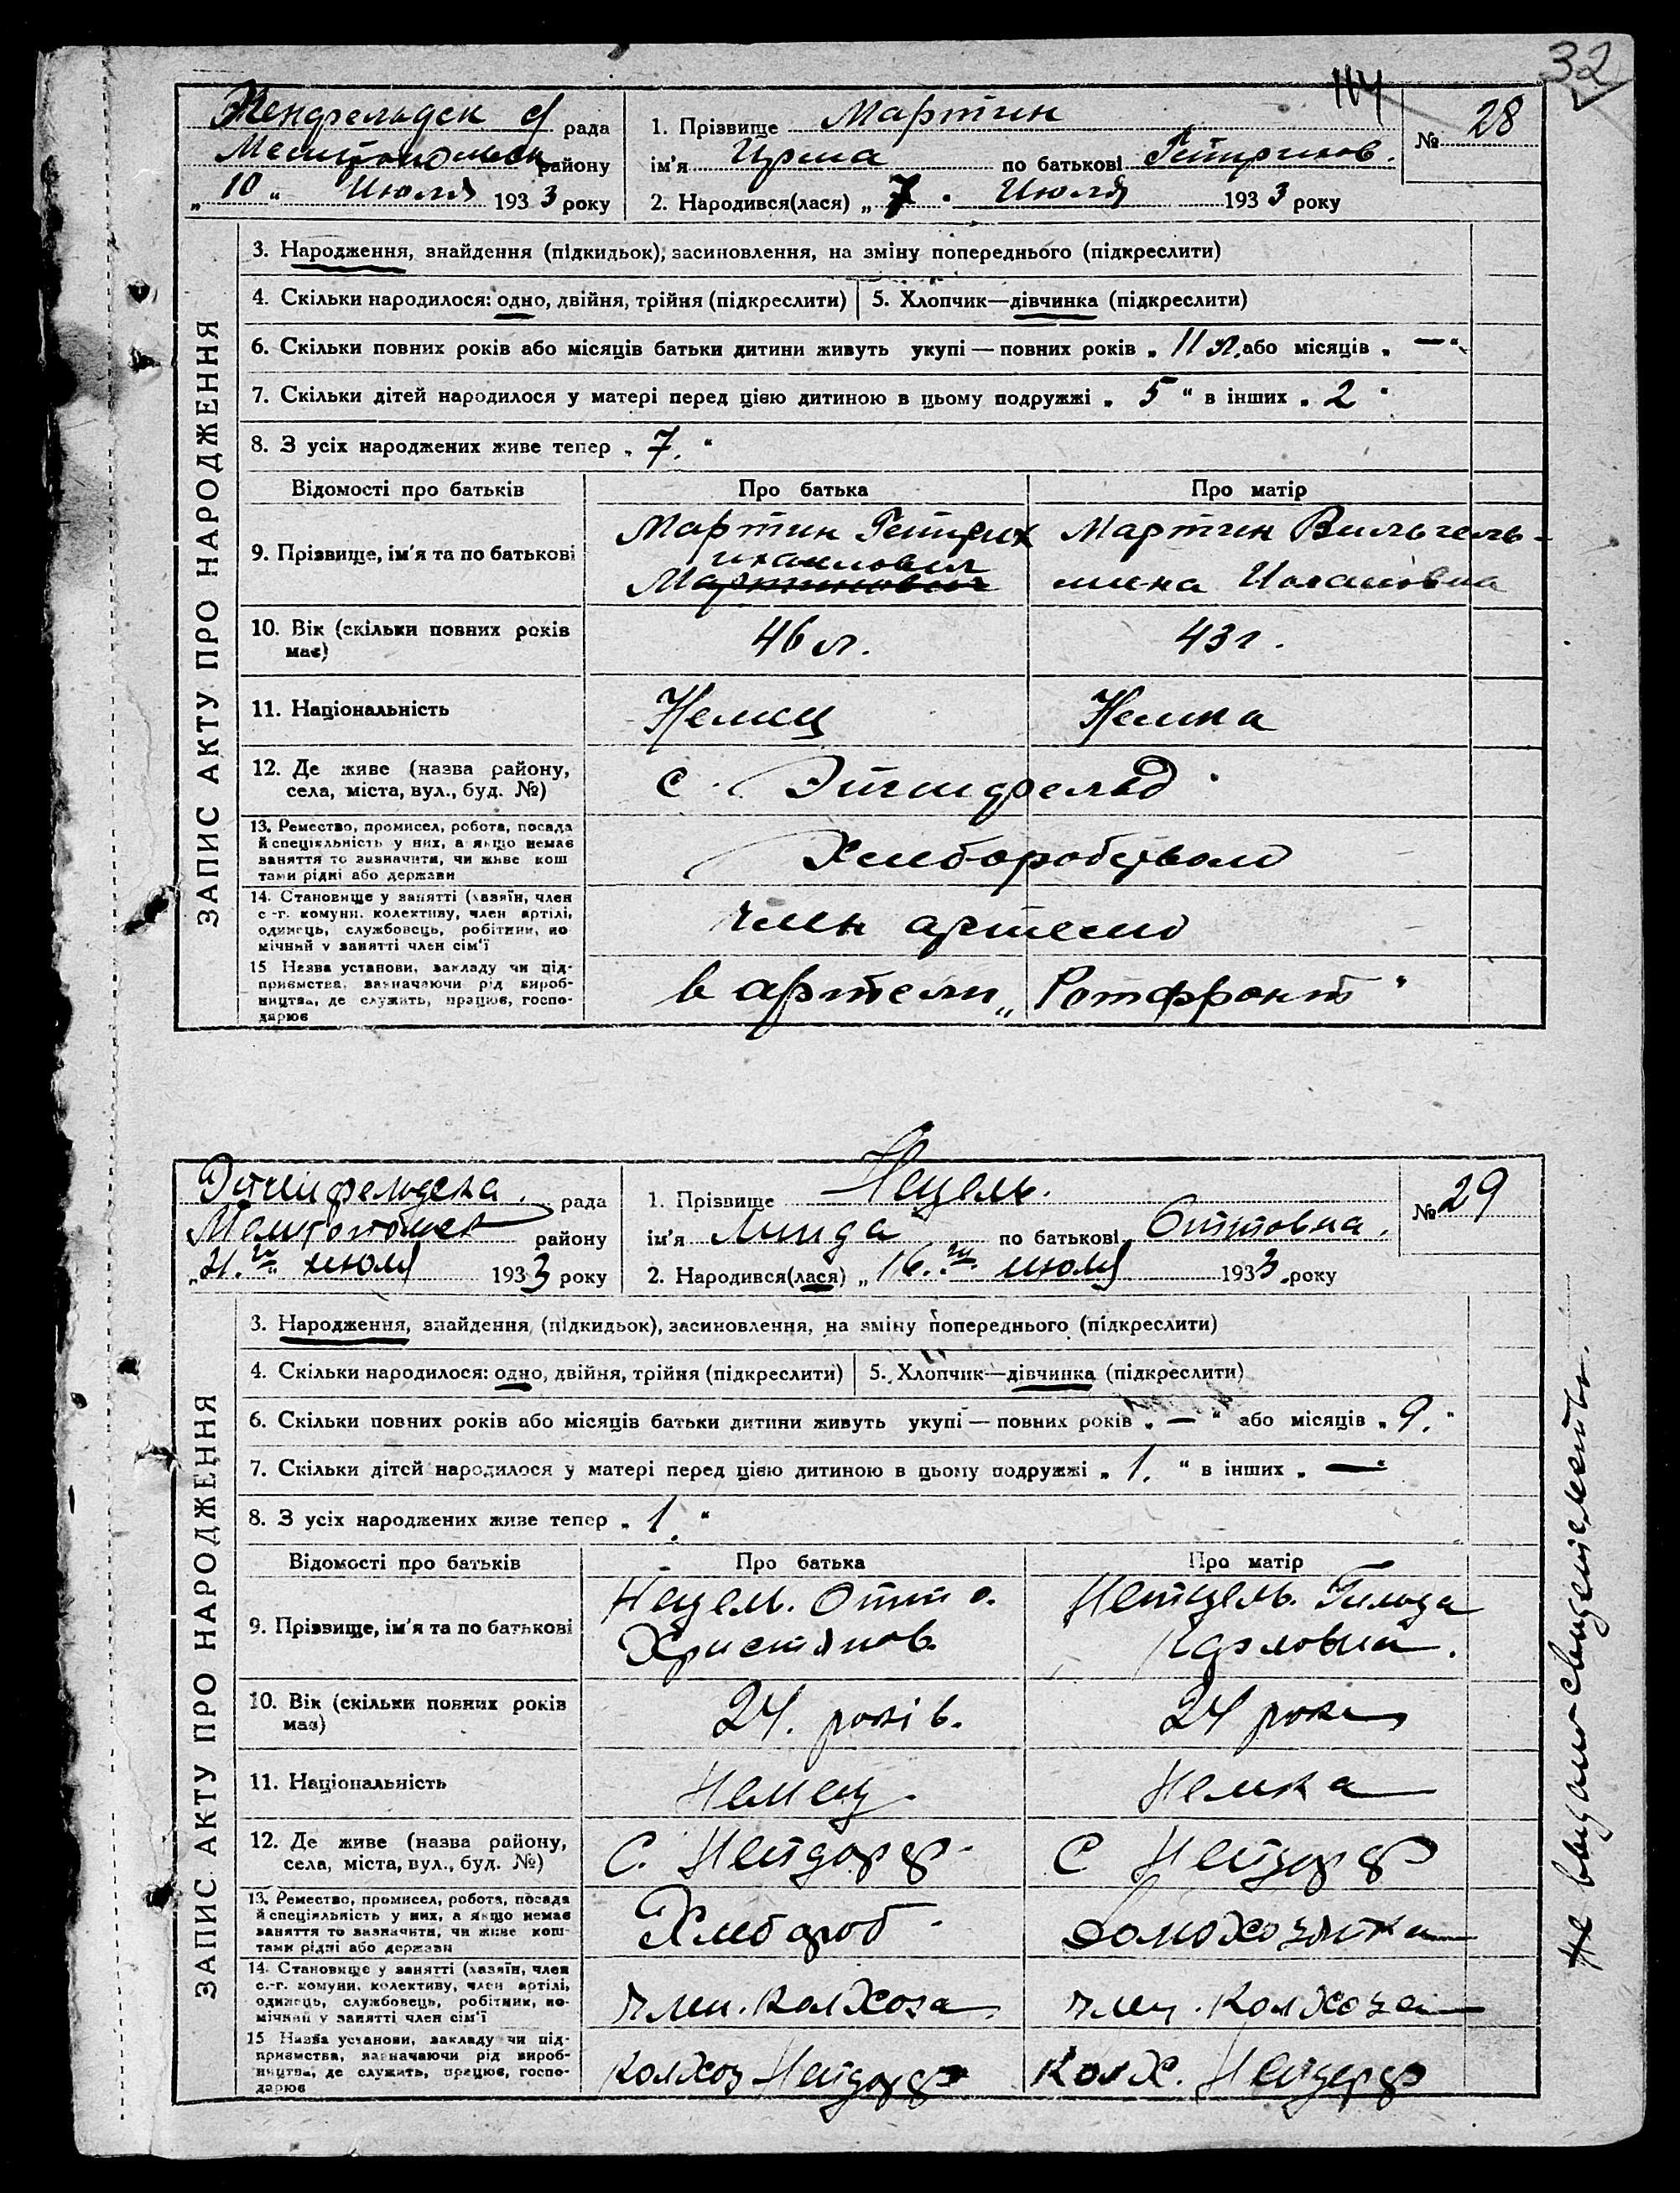 32
114
сf рада
району
„10“ Июля 1933 року
1. Прізвище Мартин
ім'я Ирма по батькові Гейнрихов.
2. Народився(лася) „7. Июля 1933 року
№ 28
ЗАПИС АКТУ ПРО НАРОДЖЕННЯ
3. Народження, знайдення (підкидьок), засиновлення, на зміну попереднього (підкреслити)
4. Скільки народилося: одно, двійня, трійня (підкреслити) 5. Хлопчик—дівчинка (підкреслити)
6. Скільки повних років або місяців батьки дитини живуть укупі — повних років „ 11 л. або місяців „ — “
7. Скільки дітей народилося у матері перед цією дитиною в цьому подружжі „ 5 “ в інших „ 2 “
8. З усіх народжених живе тепер „ 7. “
Відомості про батьків Про батька Про матір
9. Прізвище, ім'я та по батькові
Мартин Гейнрих
Мартинович
Мартин Вильгель-
мина
10. Вік (скільки повних років має) 46 л. 43 г.
11. Національність Немец Немка
12. Де живе (назва району, села, міста, вул., буд. №) с. Эйгенфельд
13. Ремество, промисел, робота, посада й спеціяльність у них, а якщо немає заняття то визначити, чи живе коштами рідні або держави Хлеборобством
14. Становище у занятті (хазяїн, член с.-г. комуни, колективу, член артілі, одинець, службовець, робітник, помічний у занятті член сім'ї член артели
15 Назва установи, закладу чи підприємства, зазначаючи рід виробництва, де служить, працює, господарює в артели „Ротфронт“
Эйгенфельдска. рада
Мелитопольск району
„21.го“ июля 1933 року
1. Прізвище Нецель.
ім'я Линда по батькові Оттовна.
2. Народився(лася) „16.го июля 1933 року
№ 29
ЗАПИС АКТУ ПРО НАРОДЖЕННЯ
3. Народження, знайдення (підкидьок), засиновлення, на зміну попереднього (підкреслити)
4. Скільки народилося: одно, двійня, трійня (підкреслити) 5. Хлопчик—дівчинка (підкреслити)
6. Скільки повних років або місяців батьки дитини живуть укупі — повних років „ — “ або місяців „ 9. “
7. Скільки дітей народилося у матері перед цією дитиною в цьому подружжі „ 1. “ в інших „ — “
8. З усіх народжених живе тепер „ 1. “
Відомості про батьків Про батька Про матір
9. Прізвище, ім'я та по батькові
Нецель. Отто.
Христянов.
Нетцель. Гильда
Карловна.
10. Вік (скільки повних років має) 24. років. 24 роки
11. Національність Немец. Немка
12. Де живе (назва району, села, міста, вул., буд. №) С. Нейдорф. С Нейдорф
13. Ремество, промисел, робота, посада й спеціяльність у них, а якщо немає заняття то визначити, чи живе коштами рідні або держави Хлебороб. Домохозяйка
14. Становище у занятті (хазяїн, член с.-г. комуни, колективу, член артілі, одинець, службовець, робітник, помічний у занятті член сім'ї член. колхоза член. колхоза
15 Назва установи, закладу чи підприємства, зазначаючи рід виробництва, де служить, працює, господарює колхоз Нейдорф колх. Нейдорф
Не выдано свидетельство.